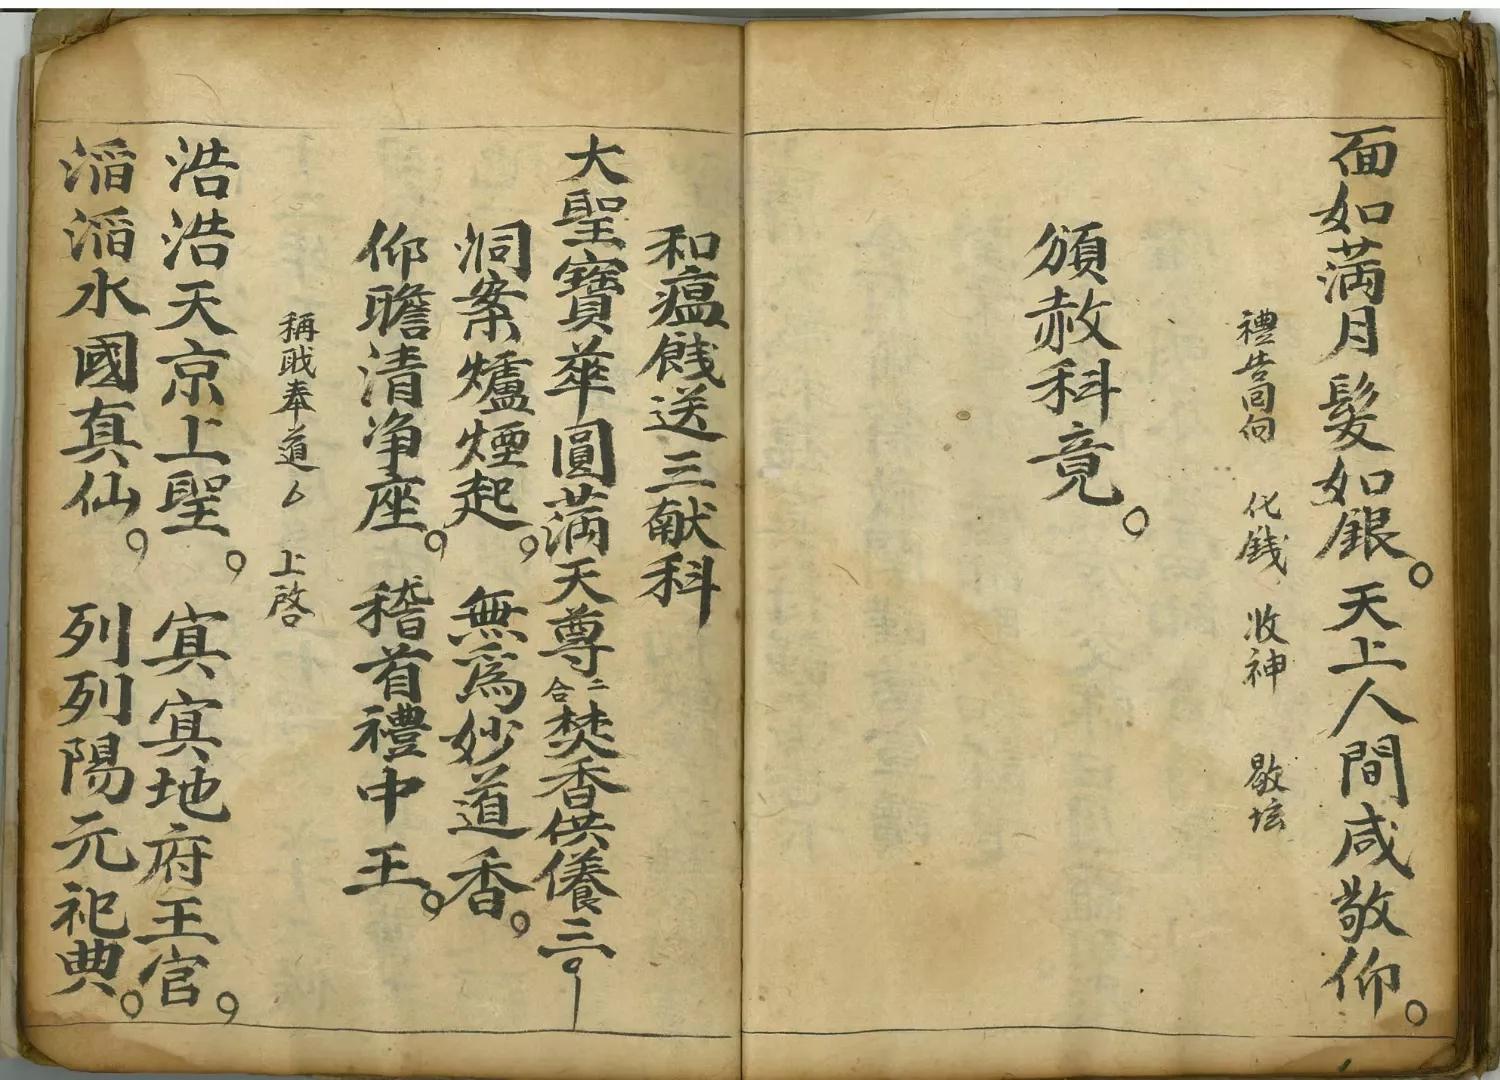 面如满月髮如銀。天上人間咸敬仰。
禮告同向 化錢 收神 歇坛
頒赦科竟。
和瘟餞送三献科
大聖寶華圓满天尊二合焚香供養三
洞案爐煙起。無為妙道香。
仰瞻清净座。稽首禮中王。
稱職奉道 上啓
浩浩天京上聖。寘寘地府王官。
滔滔水國真仙。列列陽元祀典。